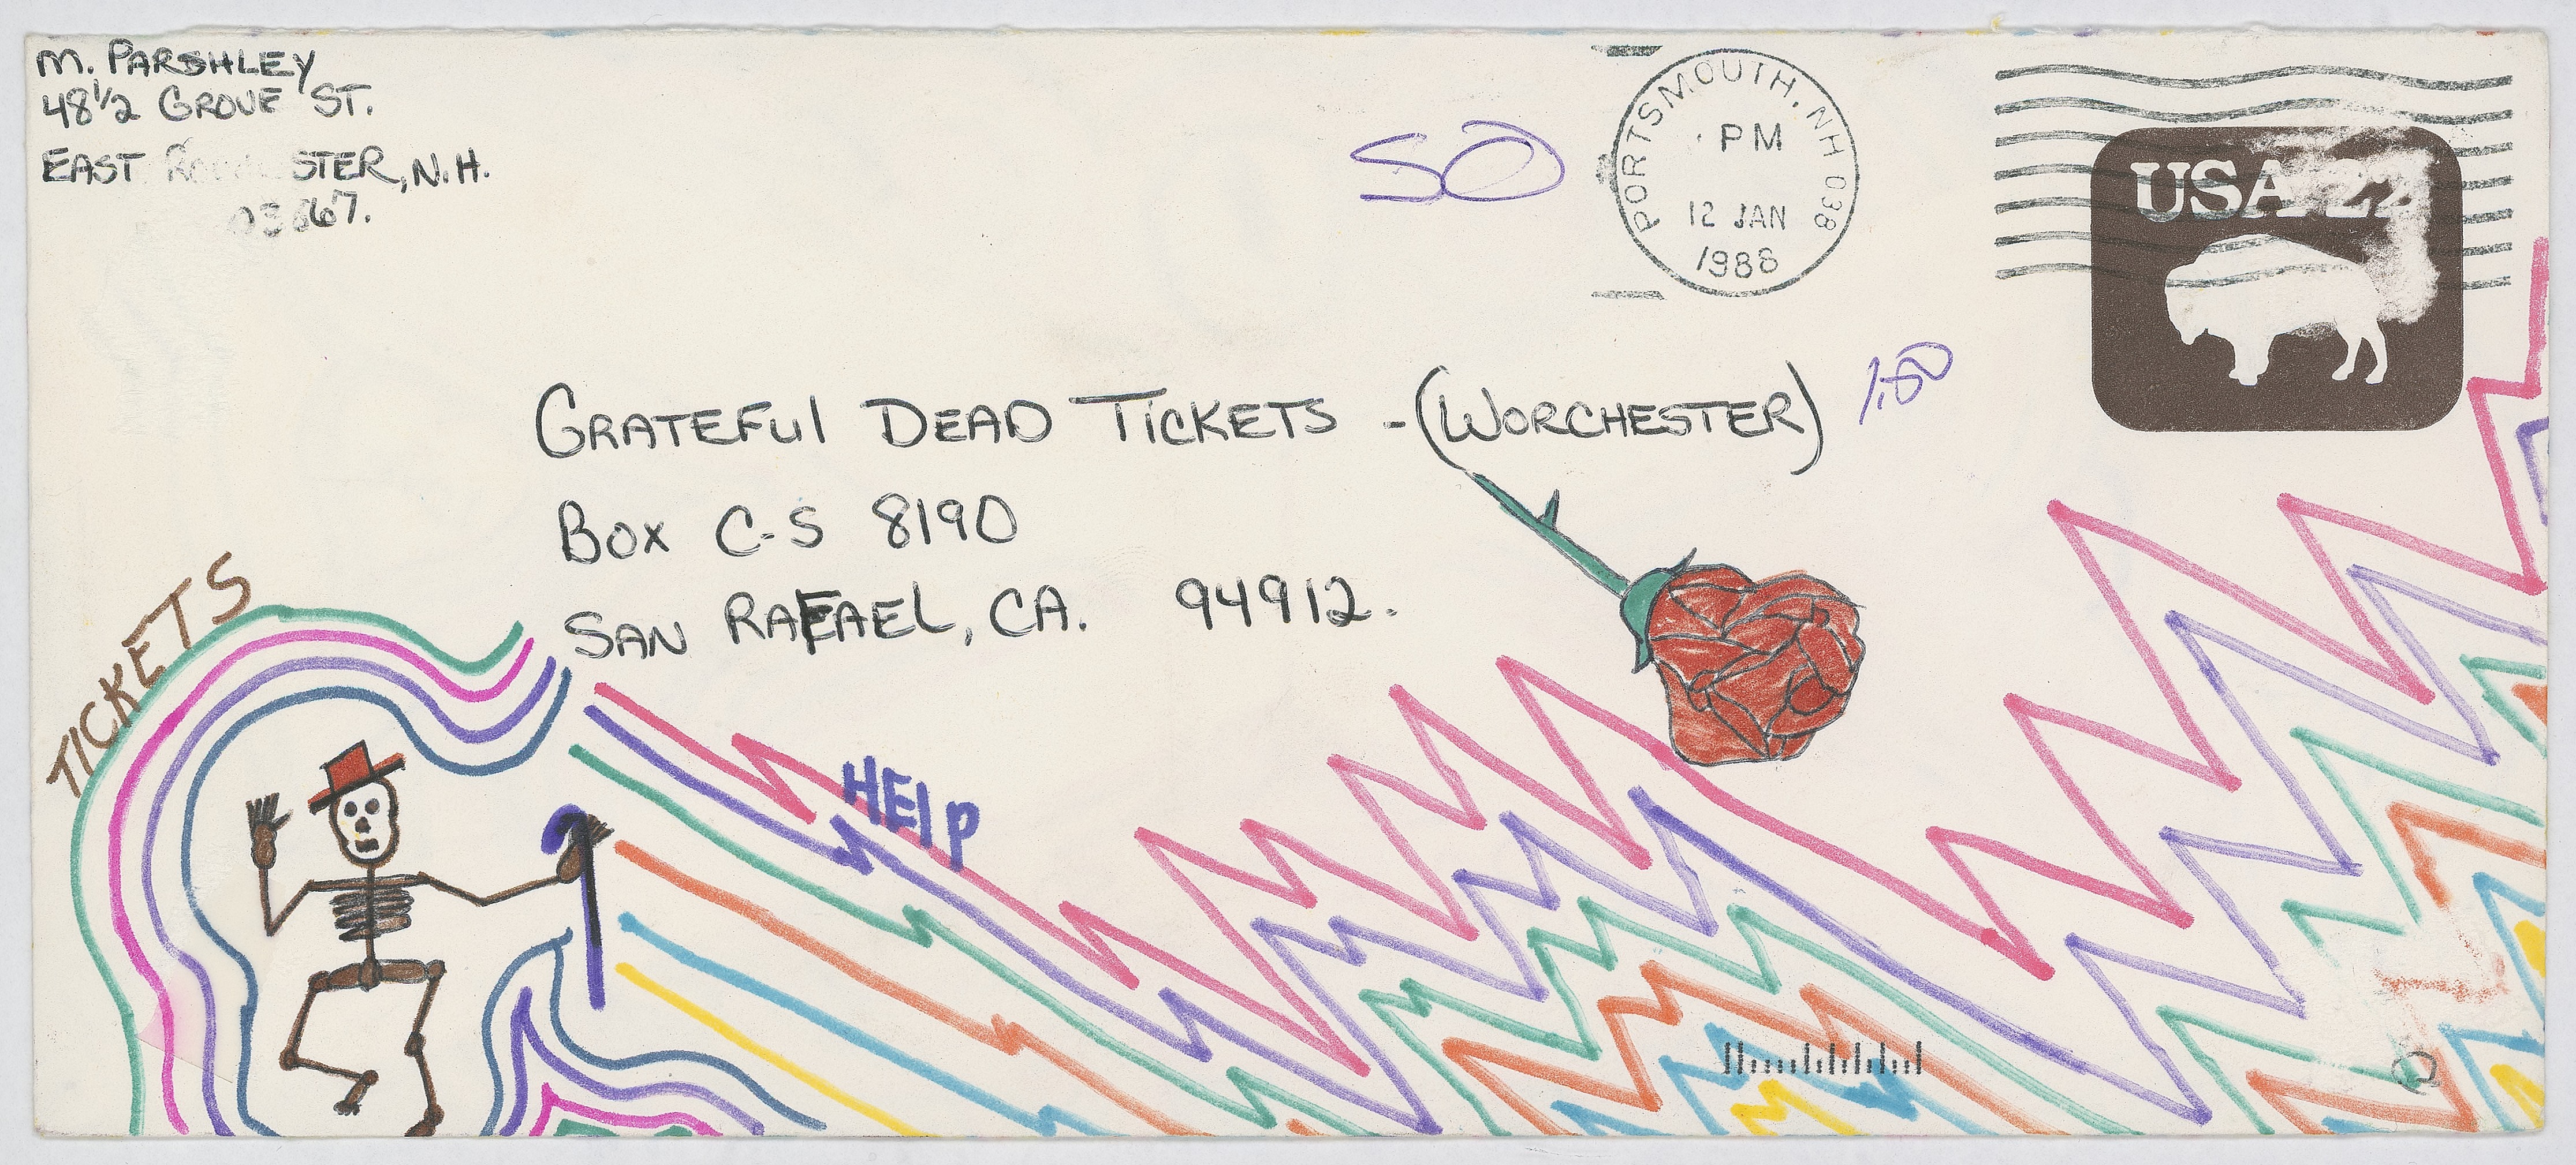 M. PARSHLEY
48½ GROVE ST.
EAST STER, N.H.
PORTSMOUTH, NH 038
PM
12 JAN
1988
USA 22
GRATEFUL DEAD TICKETS -(WORCHESTER)
BOX C-S 8190
SAN RAFAEL, CA. 94912.
TICKETS
HELP